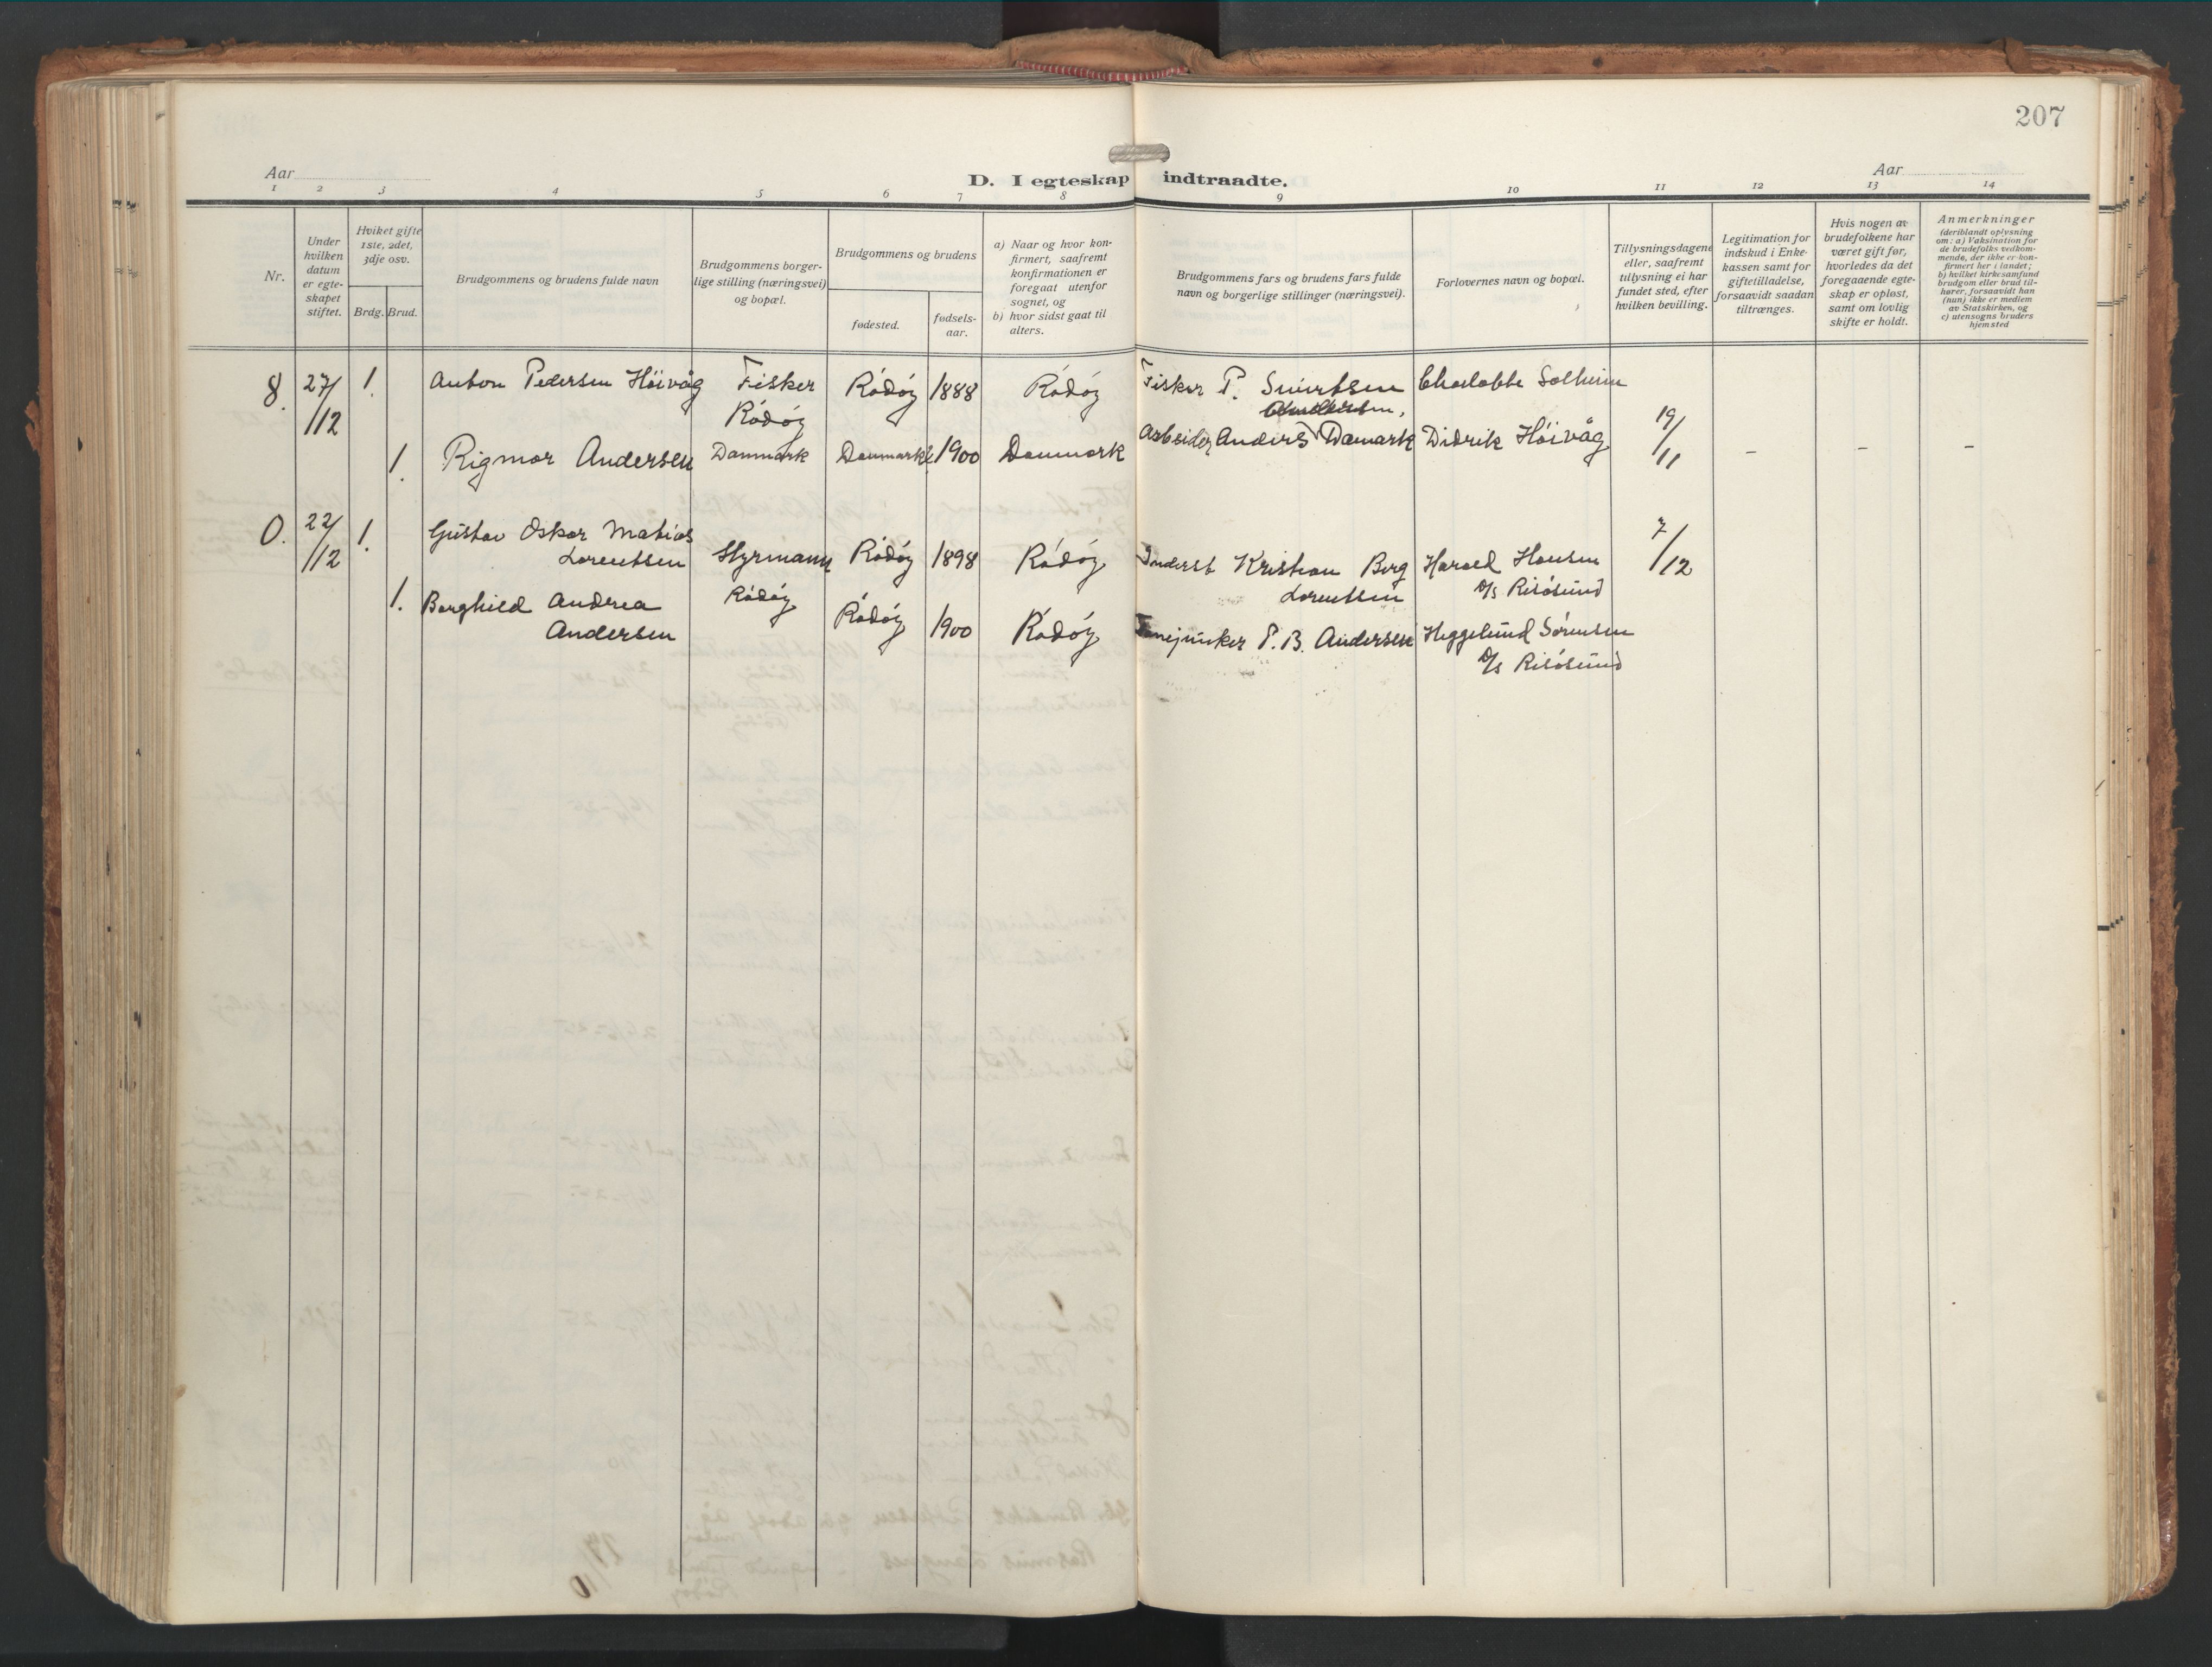 207
Aar
Aar
D. I egteskap indtraadte.
1 2 3 4 5 6 7 8 9 10 11 12 13 14
Nr.
Under
hvilken
datum
er egte-
skapet
stiftet.
Hviket gifte
1ste, 2det,
3dje osv.
Brdg. Brud.
Brudgommens og brudens fulde navn
Brudgommens borger-
lige stilling (næringsvei)
og bopæl.
Brudgommens og brudens
fødested.
fødsels-
aar.
a) Naar og hvor kon-
firmert, saafremt
konfirmationen er
foregaat utenfor
sognet, og
b) hvor sidst gaat til
alters.
Brudgommens fars og brudens fars fulde
navn og borgerlige stillinger (næringsvei).
Forlovernes navn og bopæl.
Tillysningsdagene
eller, saafremt
tillysning ei har
fundet sted, efter
hvilken bevilling.
Legitimation for
indskud i Enke-
kassen samt for
giftetilladelse,
forsaavidt saadan
tiltrænges.
Hvis nogen av
brudefolkene har
været gift før,
hvorledes da det
foregaaende egte-
skap er opløst,
samt om lovlig
skifte er holdt.
Anmerkninger
(deriblandt oplysning
om: a) Vaksination for
de brudefolks vedkom-
mende, der ikke er kon-
firmert her i landet;
b) hvilket kirkesamfund
brudgom eller brud til-
hører, forsaavidt han
(hun) ikke er medlem
av Statskirken, og
c) utensogns bruders
hjemsted
8. 27/12 1. Anton Pedersen Höivåg Fisker Rödöy 1888 Rödöy Fisker P. Sivertsen Charlotte Solheim
Rödöy
1. Rigmor Andersen Danmark Danmark 1900 Danmark Arbeider Anders Damark Didrik Höivåg 19/11 - - -
0. 22/12 1. Gustav Oskar Matias
Lorentsen Styrmann Rödöy 1898 Rödöy Inderst Kristian Berg Harald Hansen 7/12
Rödöy Lorentsen D/s Risösund
1. Borghild Andrea
Andersen Rödöy 1900 Rödöy P. B. Andersen Heggelund Sörensen
D/s Risösund